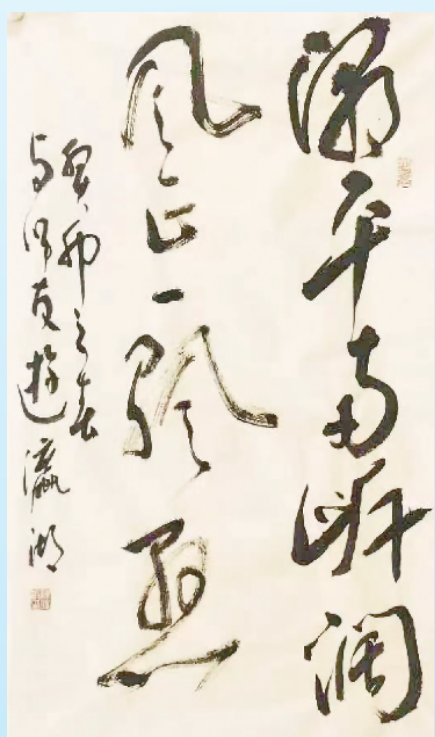 潮平两岸阔
风正一帆悬
癸卯之春
与师友游瀛湖